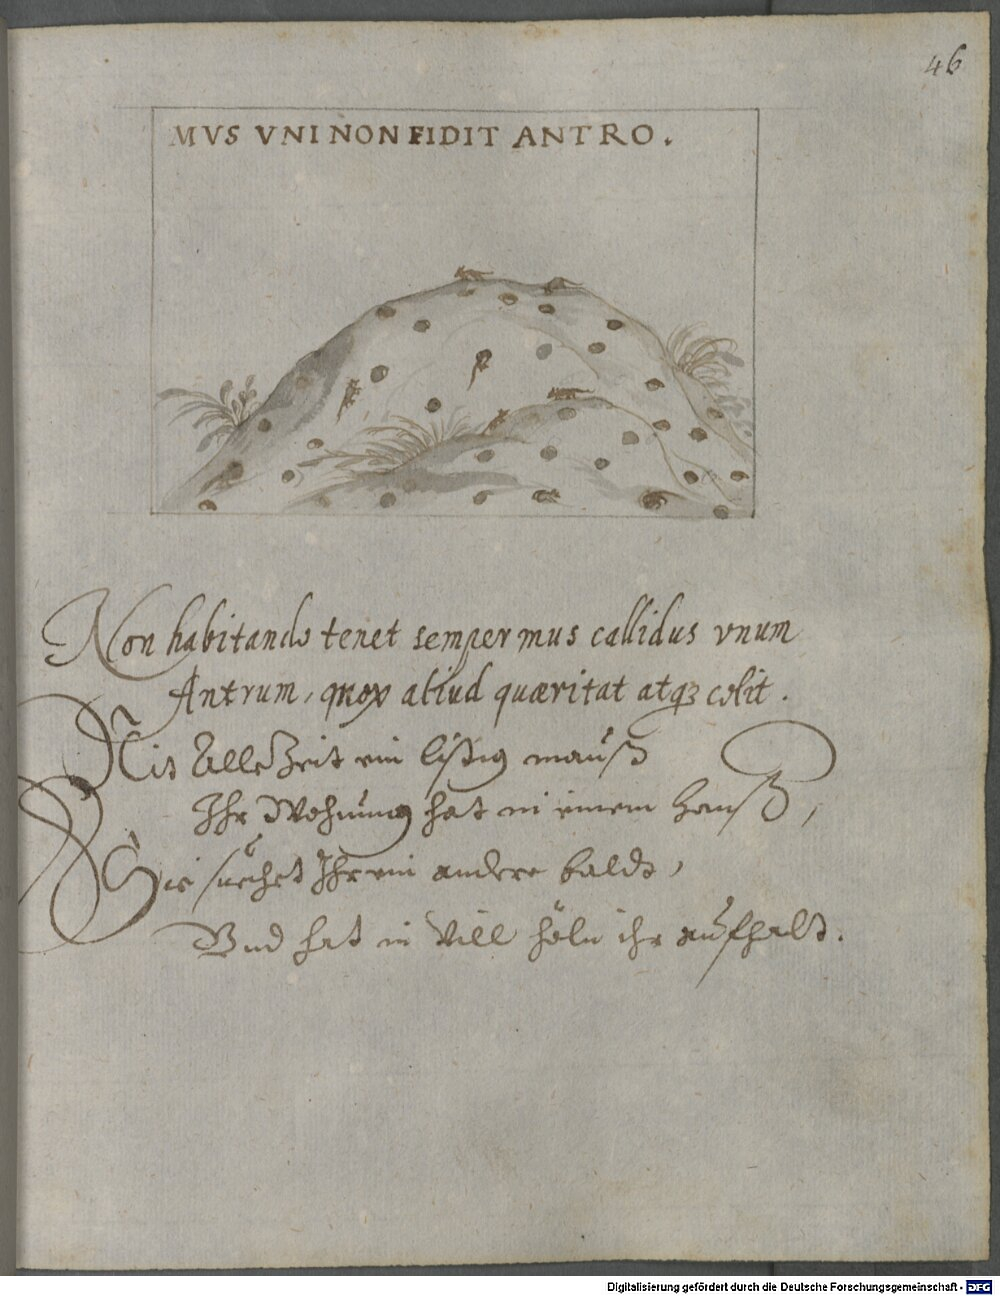 46
MVS VNI NON FIDIT ANTRO.
Non habitando tenet semper mus callidus vnum
Antrum, mox aliud quæritat atq3 colit.
Nit Alle Zeit ein listig mauß
Ihr Wohnung hat in einem hauß,
Sie suechet Ihr ein andere baldt,
Vnd hat in vill höln ihr aufhalt.
Digitalisierung gefördert durch die Deutsche Forschungsgemeinschaft - DFG